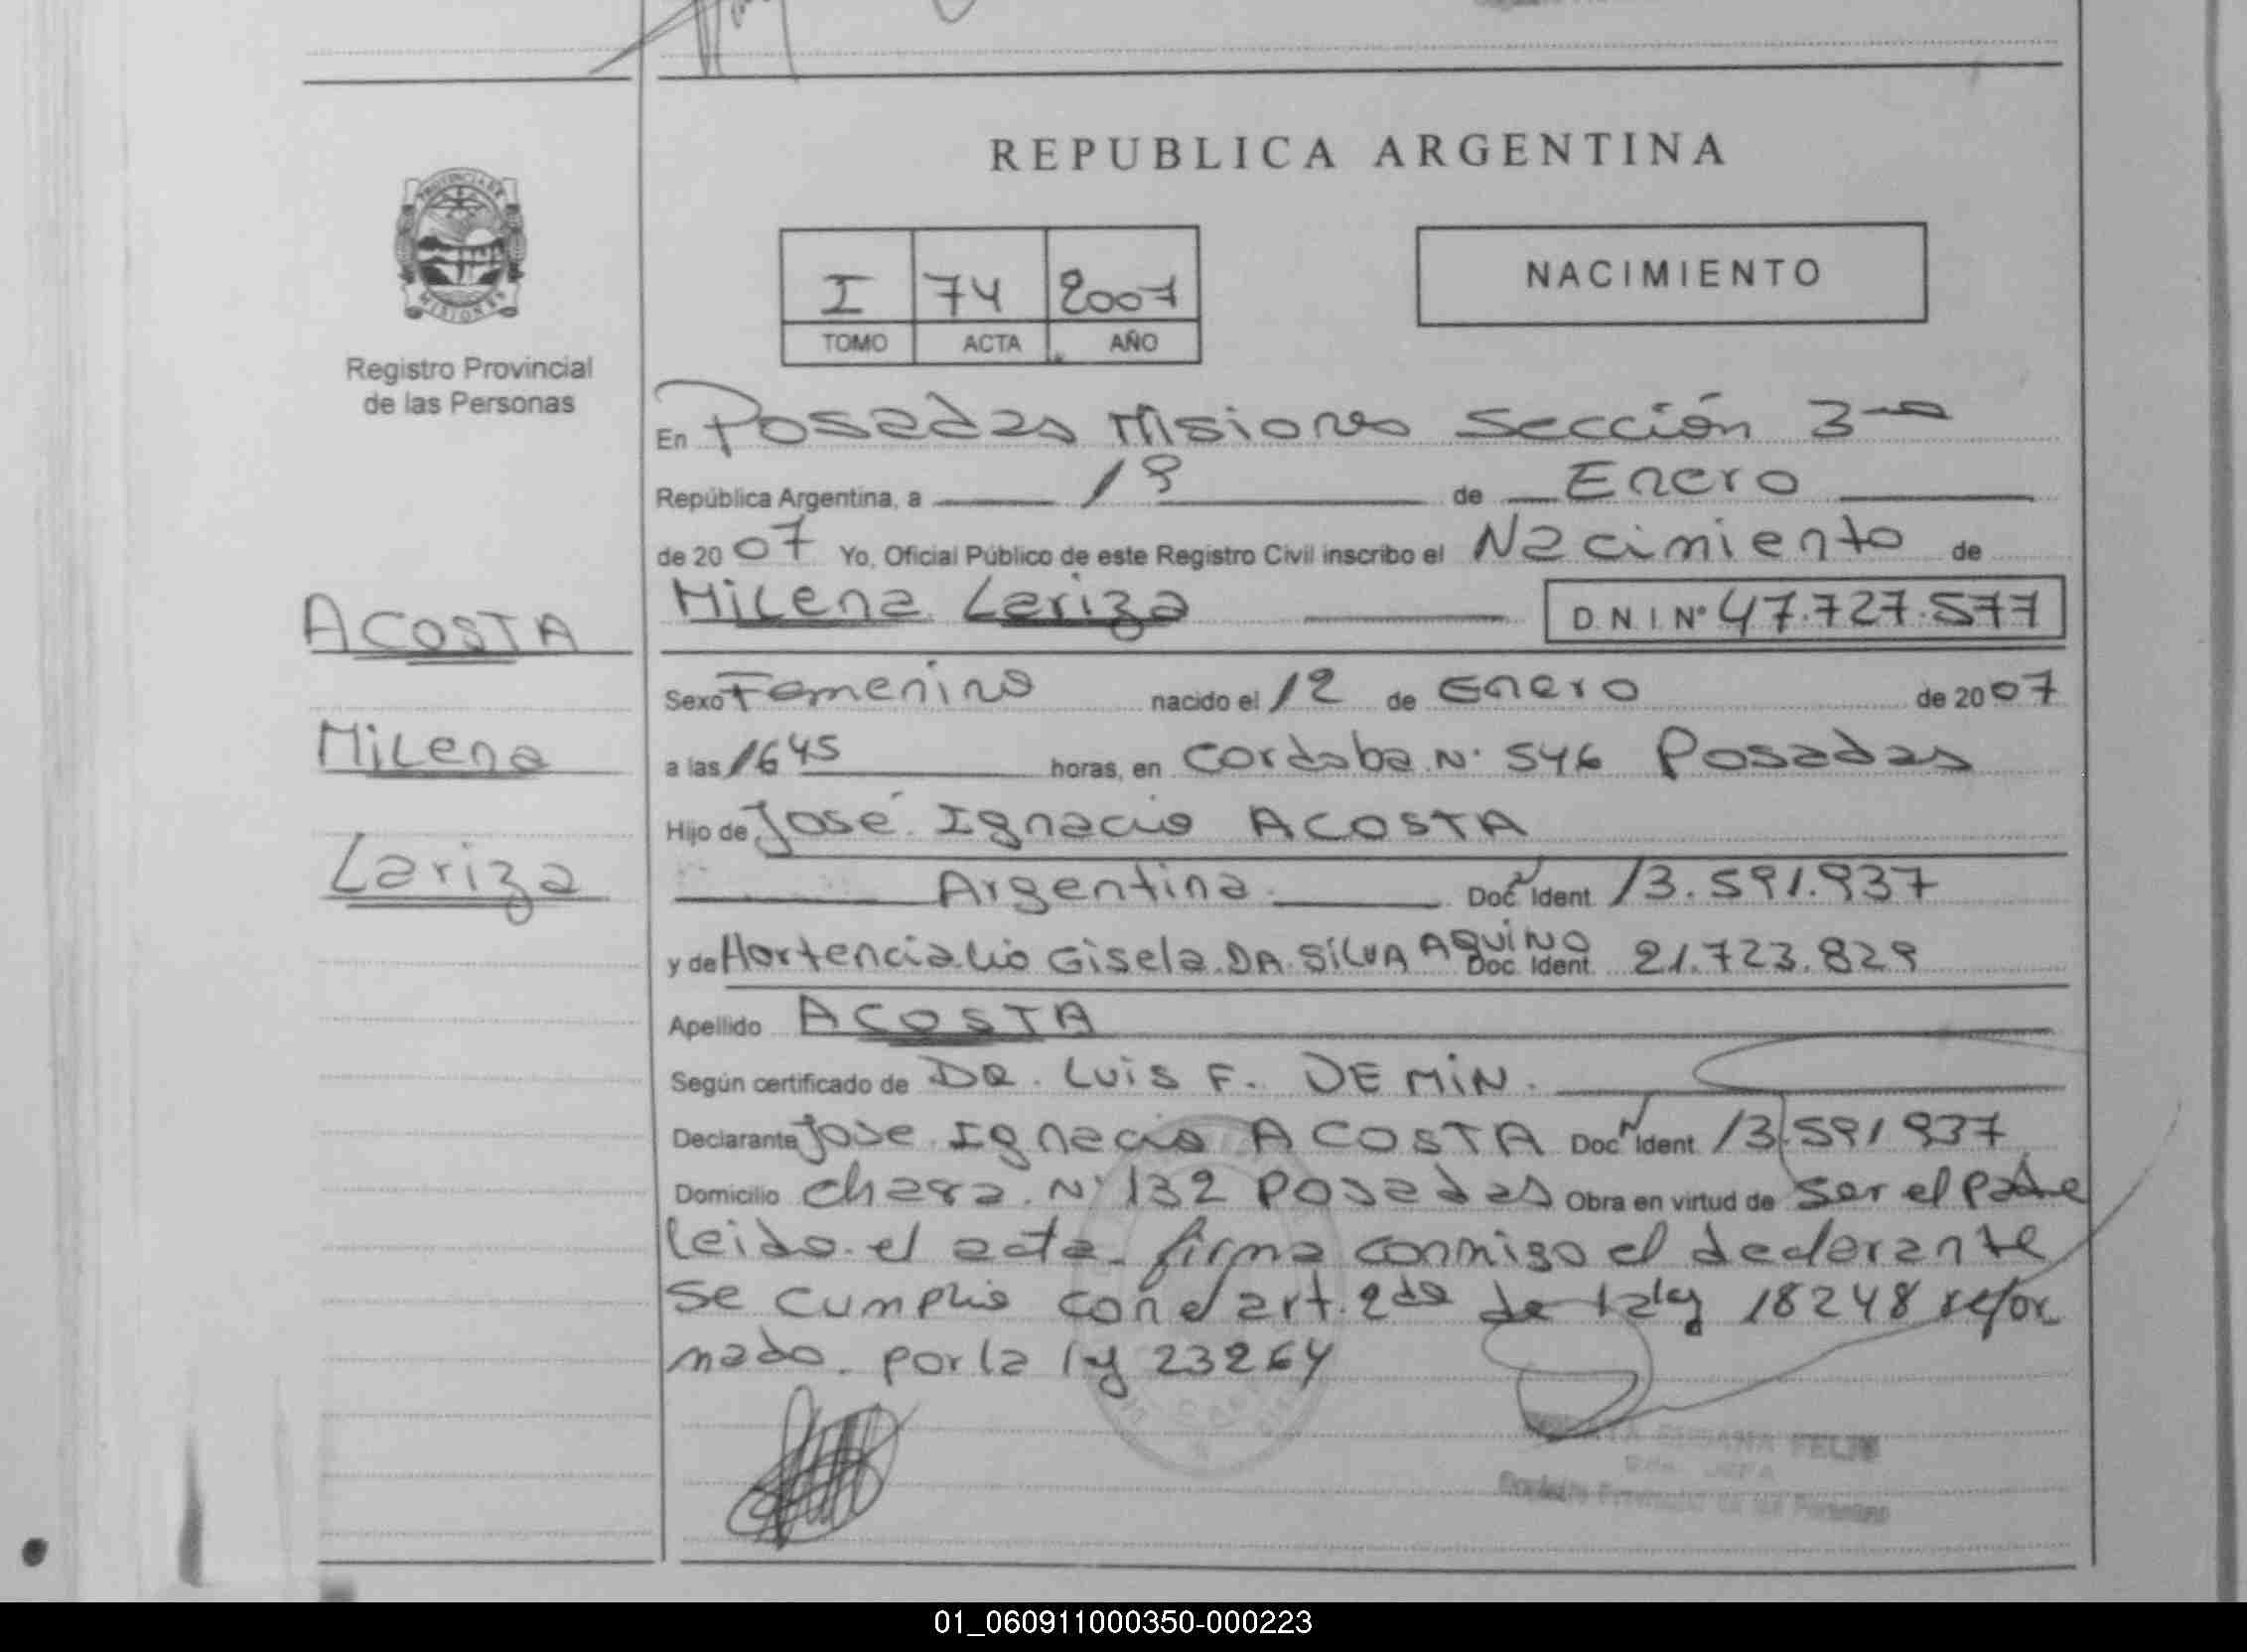 REPUBLICA ARGENTINA
PROVINCIA DE
MISIONES
Registro Provincial
de las Personas
I 74 2007
TOMO ACTA AÑO
NACIMIENTO
En Posadas Misiones Sección 3ra
República Argentina, a 19 de Enero
de 2007 Yo, Oficial Público de este Registro Civil inscribo el Nacimiento de
Milena Lariza D.N.I. Nº 47.727.577
ACOSTA
Milena
Lariza
Sexo Femenino nacido el 12 de Enero de 2007
a las 16 45 horas, en Cordoba Nº 546 Posadas
Hijo de José Ignacio ACOSTA
Argentina Doc. Ident 13.591.937
y de Hortencia Gisela DA SILVA AQUINO Doc. Ident 21.723.829
Apellido ACOSTA
Según certificado de DR. LUIS F. DEMIN.
Declarante Jose Ignacio ACOSTA Doc. Ident 13.591937
Domicilio Chacra Nº 132 Posadas Obra en virtud de ser el padre
leido el acta firma conmigo el declarante
se cumplio con el art. 2do de la ley 18248 refor
mado por la ley 23264
SUSANA FELIP
Registro Provincial de las Personas
01_060911000350-000223